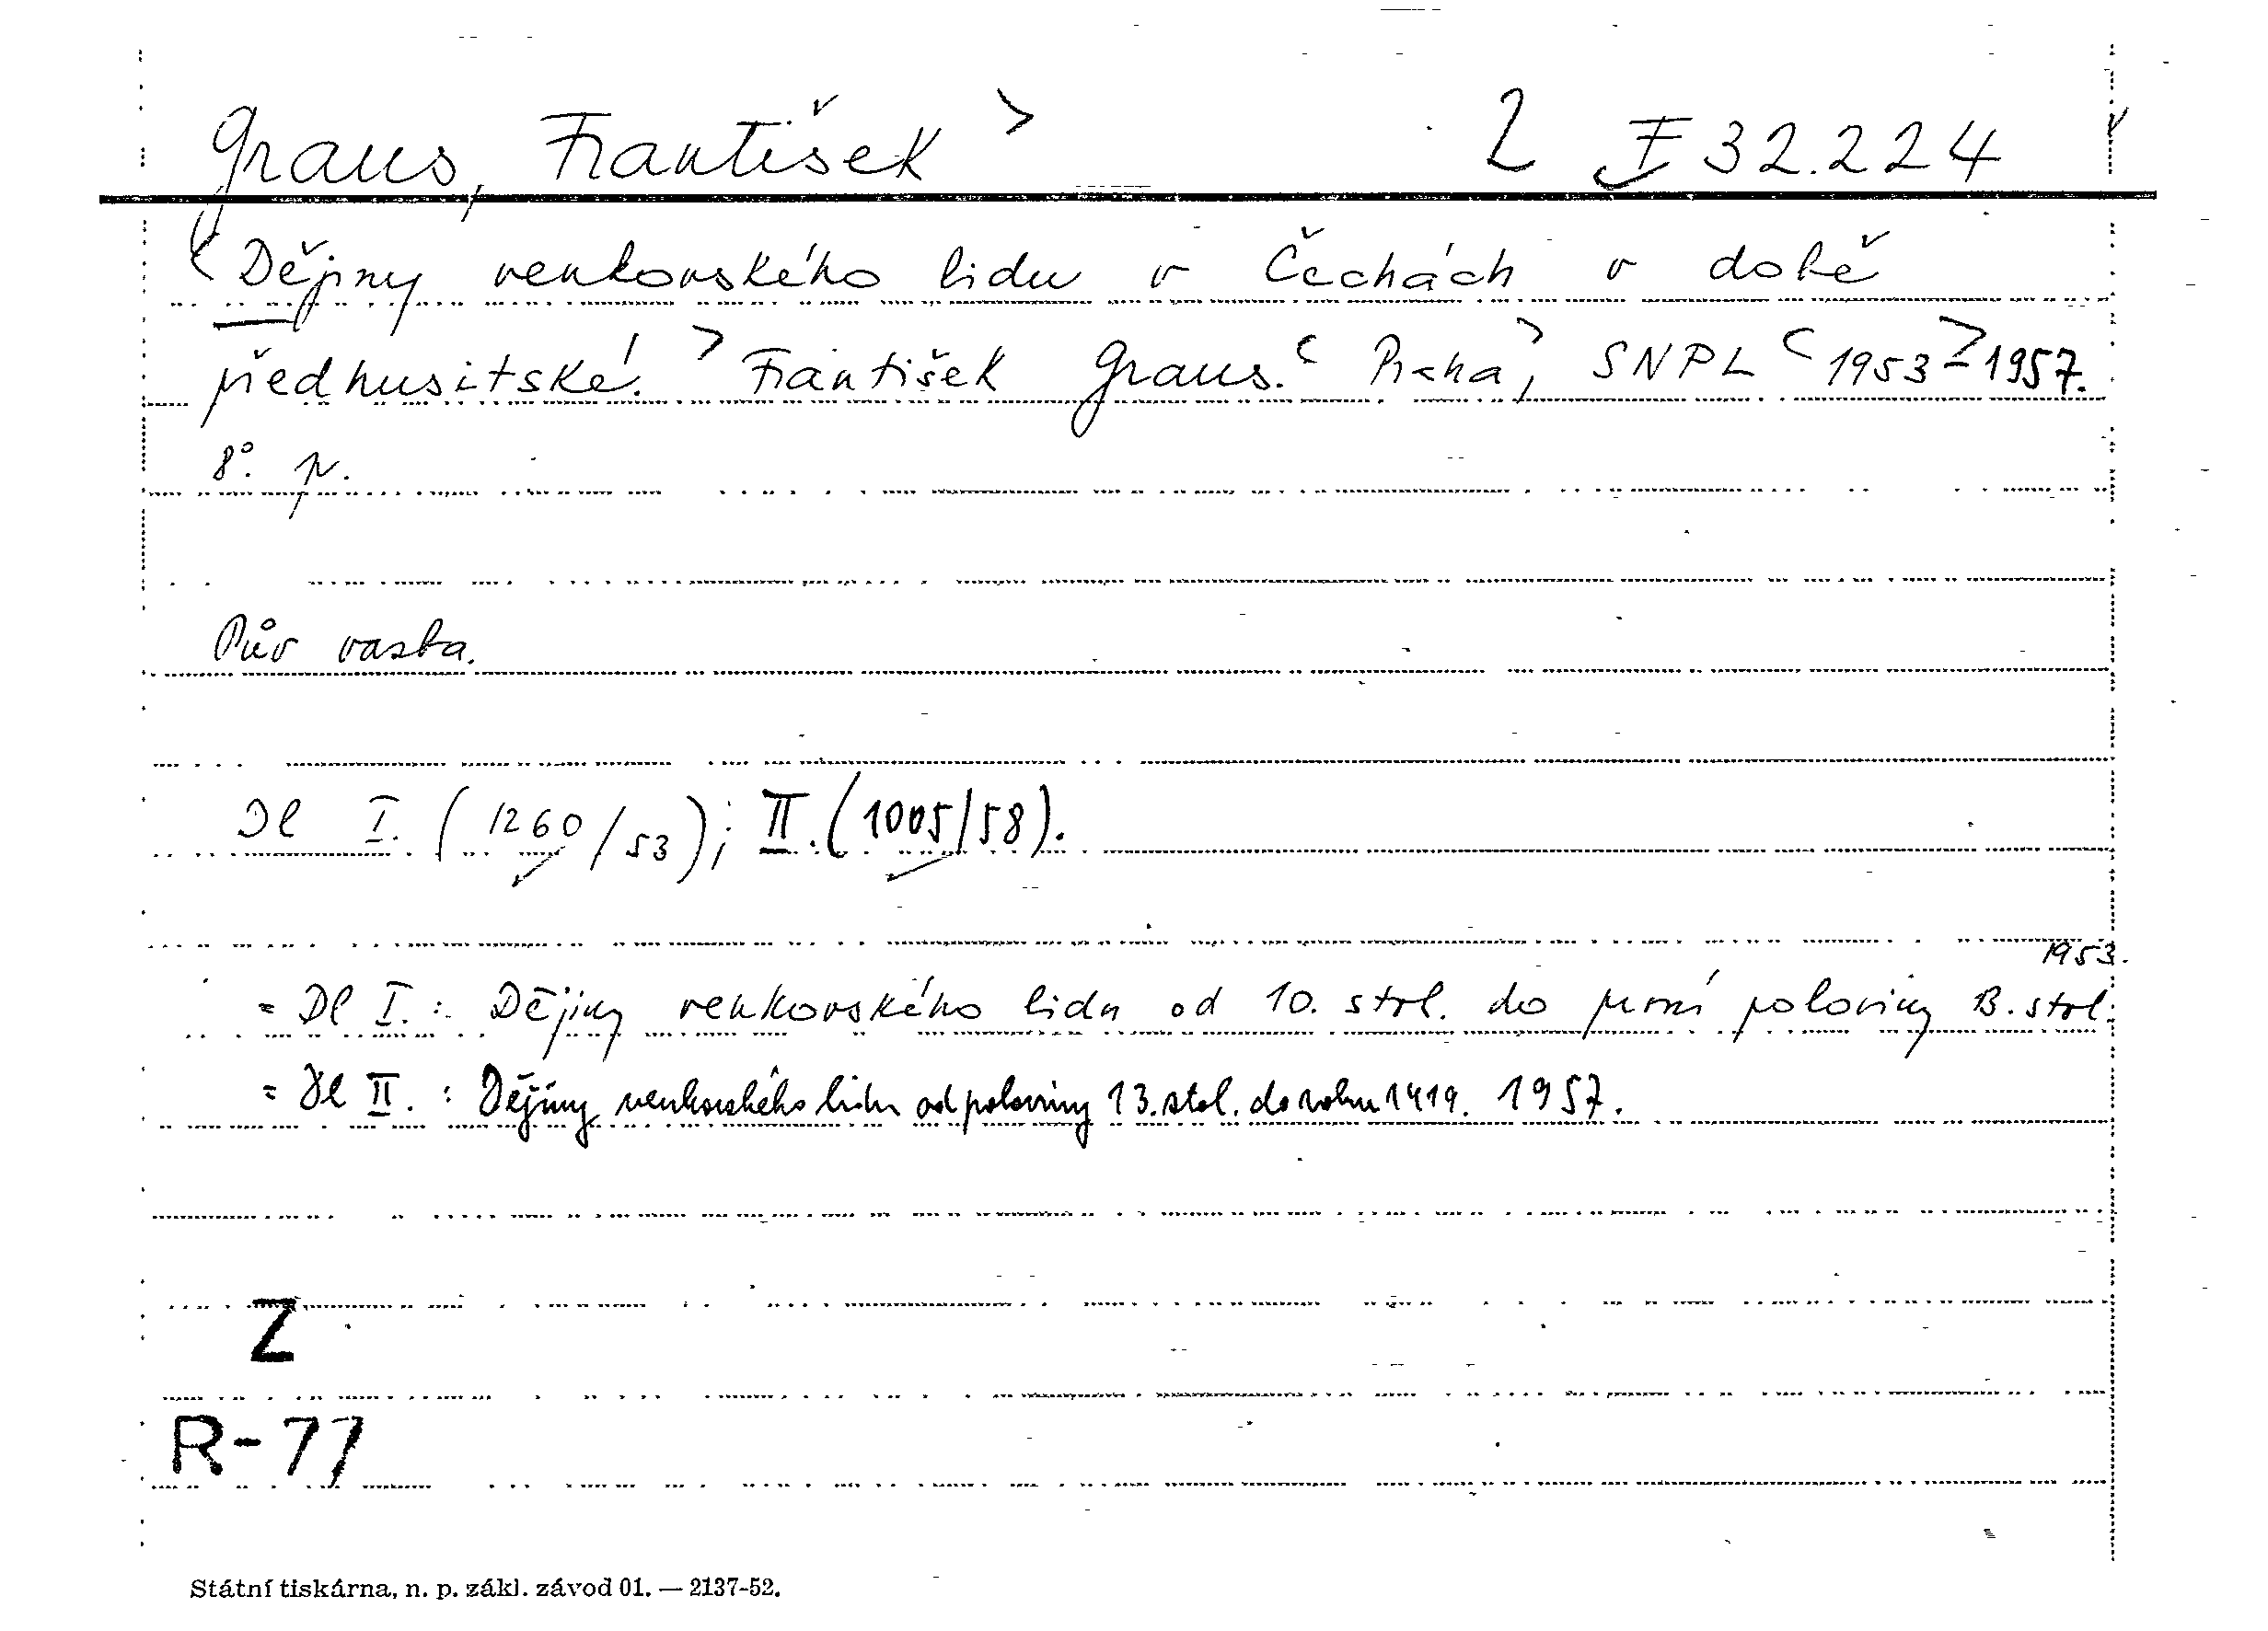 Graus, František > 2 I 32.224
< Dějiny venkovského lidu v Čechách v době
předhusitské. > František Graus. < Praha, > SNPL < 1953 > - 1957.
8°. p.
Pův vazba.
Dl I. (1260/53); II. (1005/58).
1953.
= Dl I. : Dějiny venkovského lidu od 10. stol. do první poloviny 13. stol.
= Dl II. : Dějiny venkovského lidu od poloviny 13. stol. do roku 1419. 1957.
Z
R-77
Státní tiskárna, n. p. zákl. závod 01. — 2137-52.